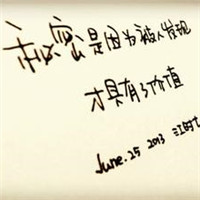 秘密是因为被人发现
才具有了价值
June. 25 2013 江时亡